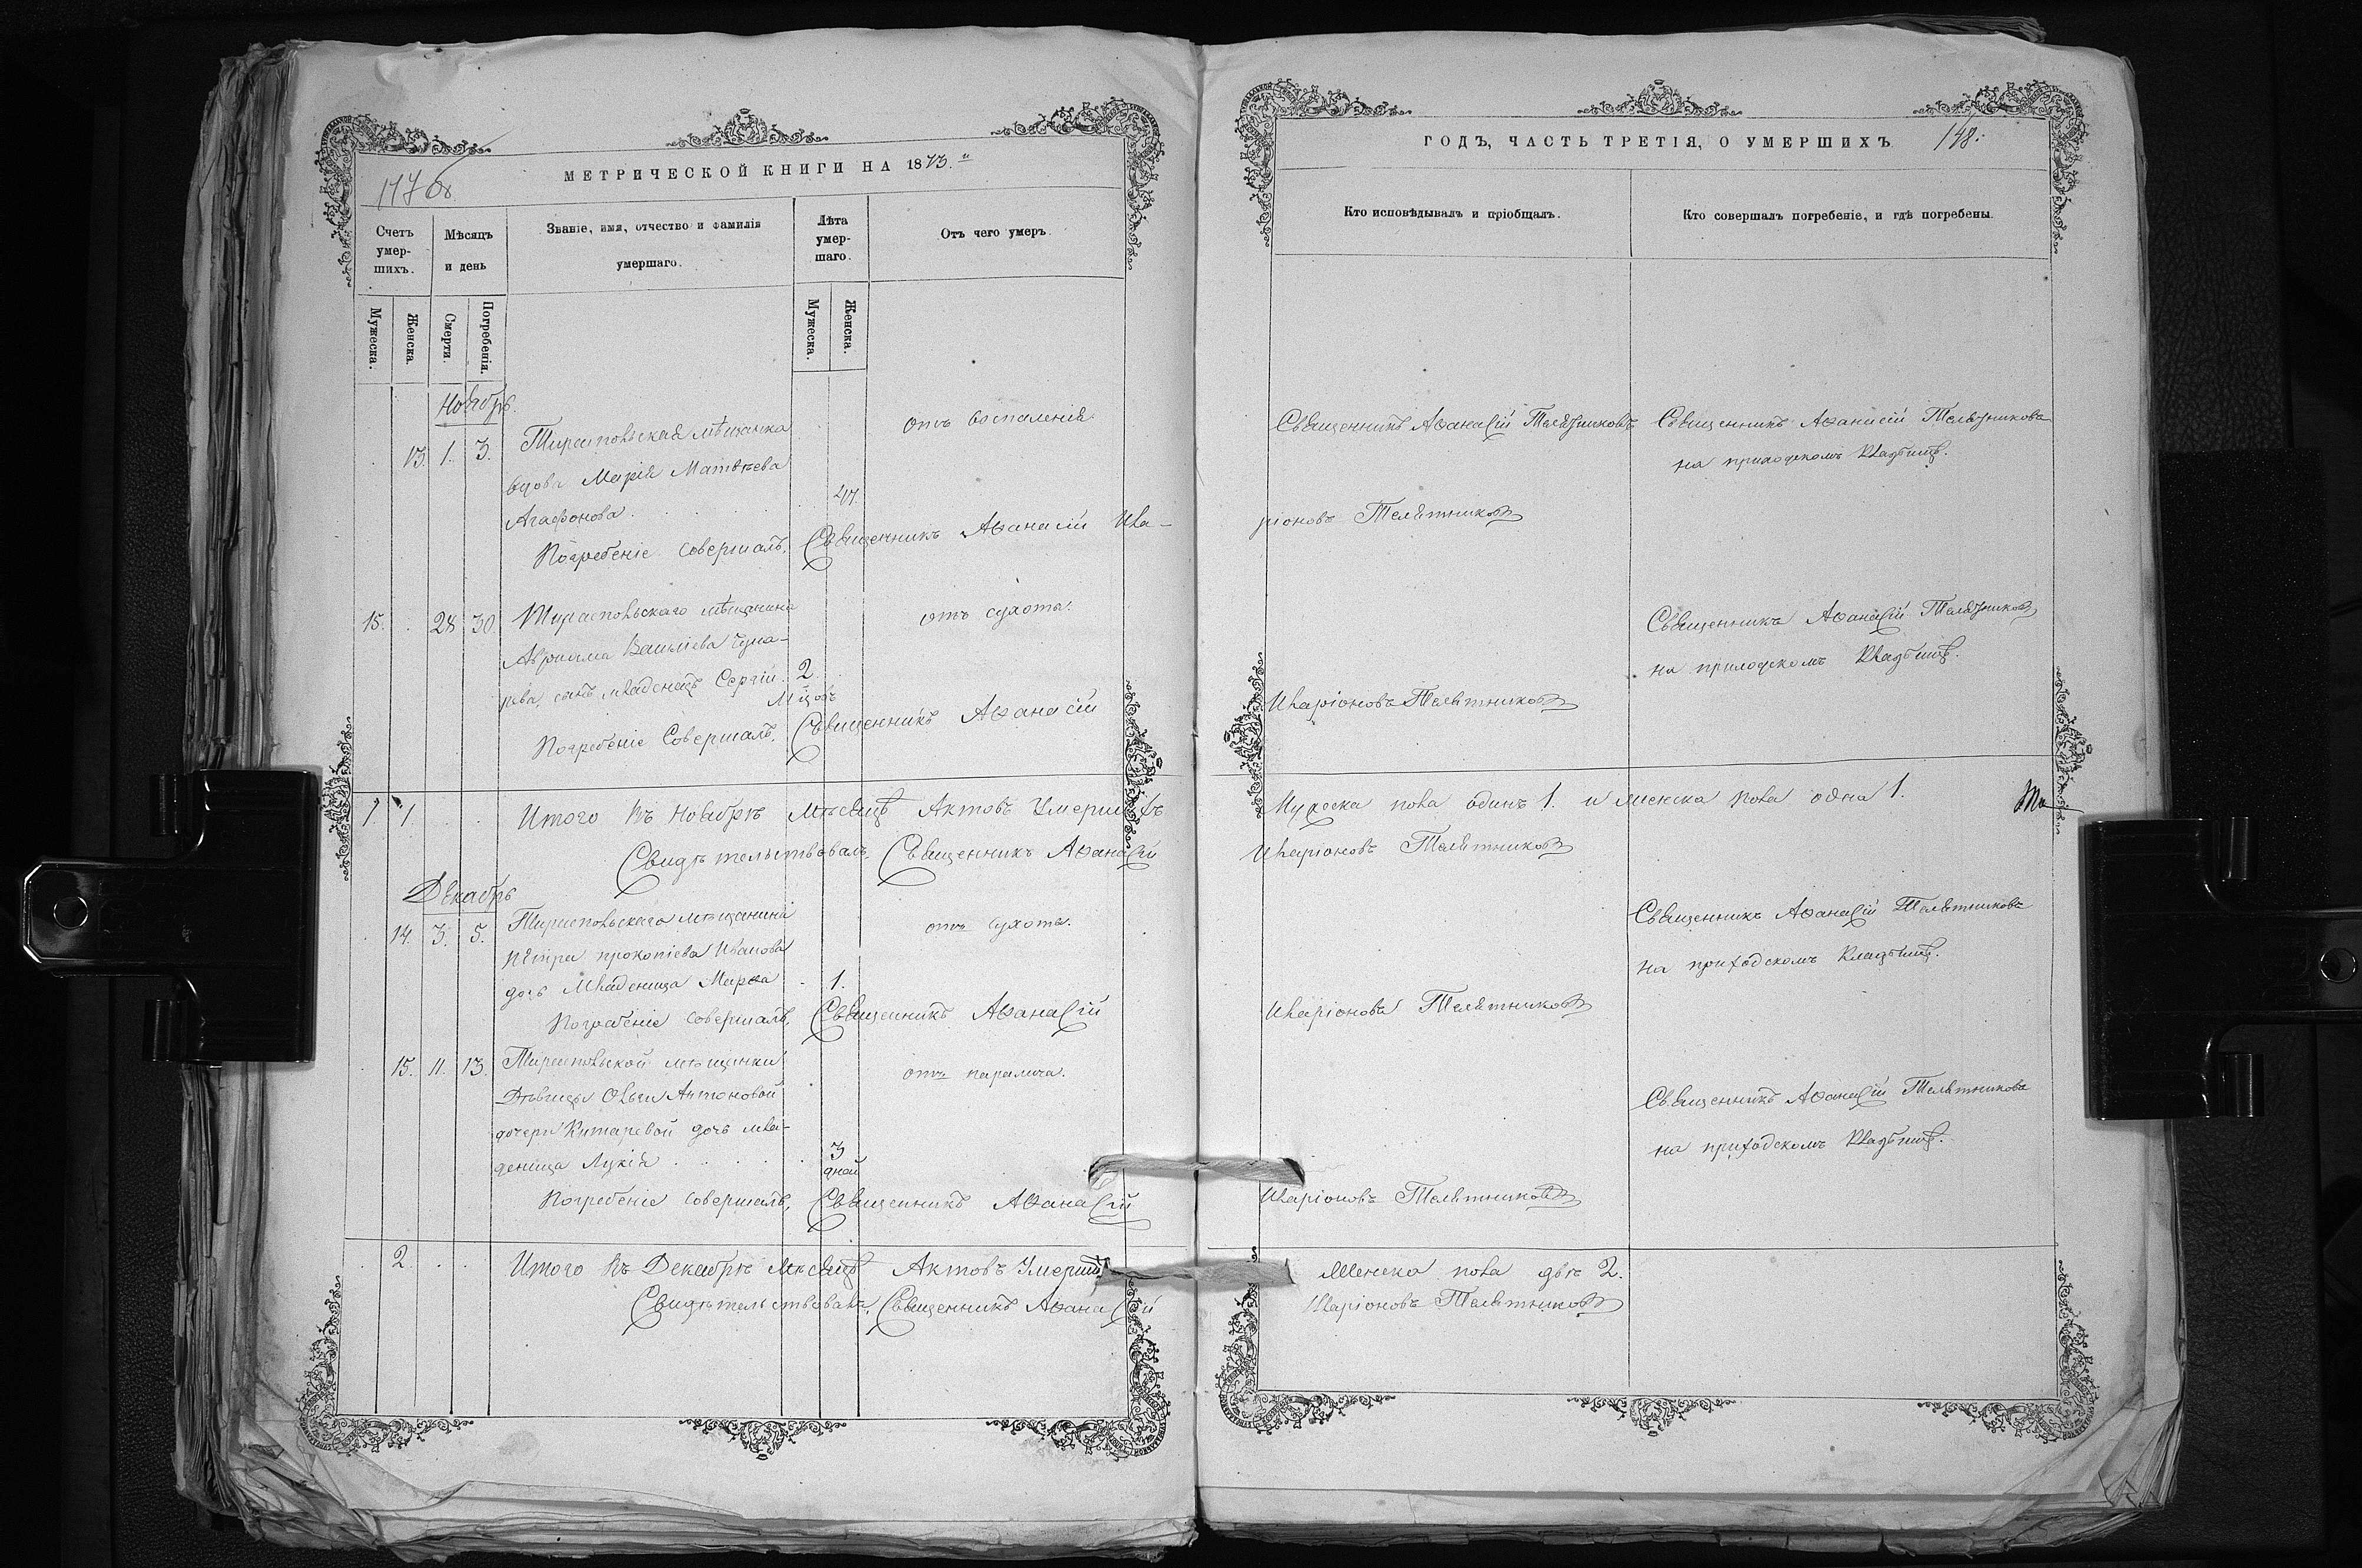 МЕТРИЧЕСКОЙ КНИГИ НА 1873.
Счетъ умер-шихъ.
Мѣсяцъ и день
Званіе, имя, отчество и фамилія умершаго.
Лѣта умер-шаго.
Отъ чего умеръ.
Мужеска.
Женска.
Смерти.
Погребенія.
Мужеска.
Женска.
Ноябрь.
13. 1. 3. Тираспольская мѣщанка отъ воспаленія
вдова Марія Матвѣева
Агафонова 47.
Погребеніе совершалъ, Священникъ Аѳанасій Ила-
15. 28 30 Тираспольскаго мѣщанина отъ сухоты.
Авраама Васильева
сынъ младенецъ Сергій. 2.
м-цовъ
Погребеніе Совершалъ, Священникъ Аѳанасій
1 1 Итого въ Ноябрѣ Мѣсяцѣ Актовъ Умершихъ
Свидѣтельствовалъ, Священникъ Аѳанасій
Декабрь
14. 3. 5. Тираспольскаго мѣщанина отъ сухоты.
Петра прокопіева Иванова
дочь Младеница Марѳа 1.
Погребеніе совершалъ, Священникъ Аѳанасій
15. 11. 13. Тираспольской мѣщанки отъ паралича.
Дѣвицы Ольги Антоновой
дочери Китаревой дочь мла-
деница Лукія 3
дней
Погребеніе совершалъ, Священникъ Аѳанасій
2. Итого въ Декабрѣ Мѣсяцѣ Актовъ Умершихъ
Свидѣтельствовалъ, Священникъ Аѳанасій
ГОДЪ, ЧАСТЬ ТРЕТІЯ, О УМЕРШИХЪ 148.
Кто исповѣдывалъ и пріобщалъ.
Кто совершалъ погребеніе, и гдѣ погребены.
Священникъ Аѳанасій Телятниковъ Священникъ Аѳанасій Телятниковъ
на приходскомъ кладбищѣ.
ріоновъ Телятниковъ
Священникъ Аѳанасій Телятниковъ
на приходскомъ кладбищѣ.
Иларіоновъ Телятниковъ
Мужеска пола одинъ 1. и женска пола одна 1.
Иларіоновъ Телятниковъ
Священникъ Аѳанасій Телятниковъ
на приходскомъ кладбищѣ.
Иларіоновъ Телятниковъ
Священникъ Аѳанасій Телятниковъ
на приходскомъ кладбищѣ.
Иларіоновъ Телятниковъ
Женска пола двѣ 2.
Иларіоновъ Телятниковъ